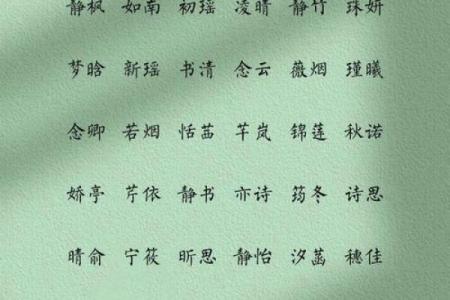 静枫 如南 初瑶 凌晴 静竹 珠妍
梦晗 新瑶 书清 念云 薇烟 瑾曦
念卿 若烟 恬茜 芊岚 锦莲 秋诺
娇亭 芹依 静书 亦诗 筠冬 诗思
晴俞 宁筱 昕思 静怡 汐菡 穗佳